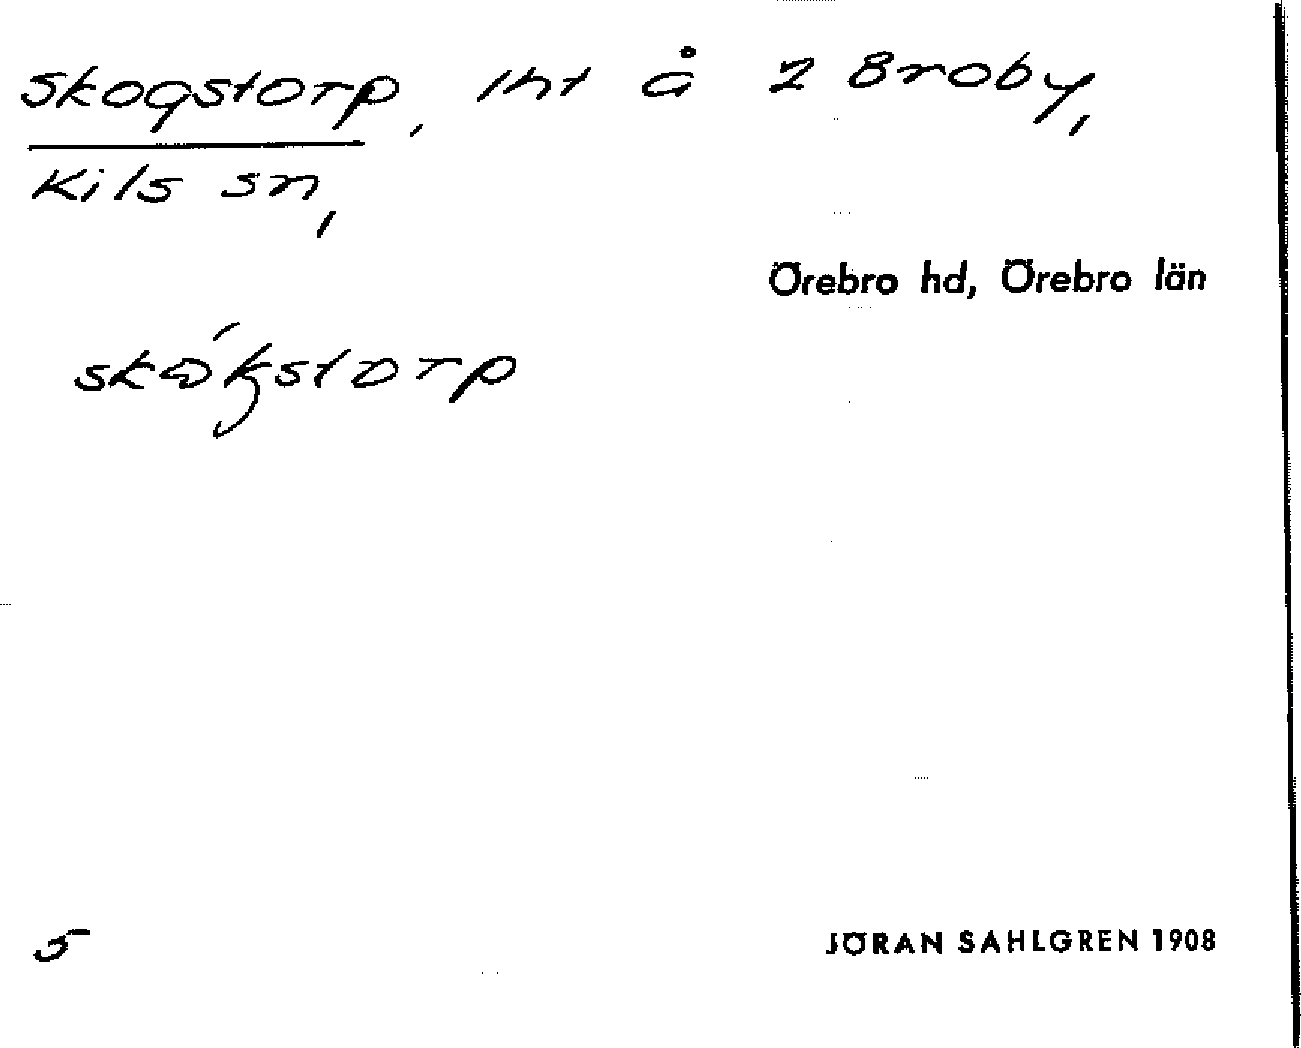 Skogstorp, lht å 2 Broby,
Kils sn,
Örebro hd, Örebro län
5
JÖRAN SAHLGREN 1908